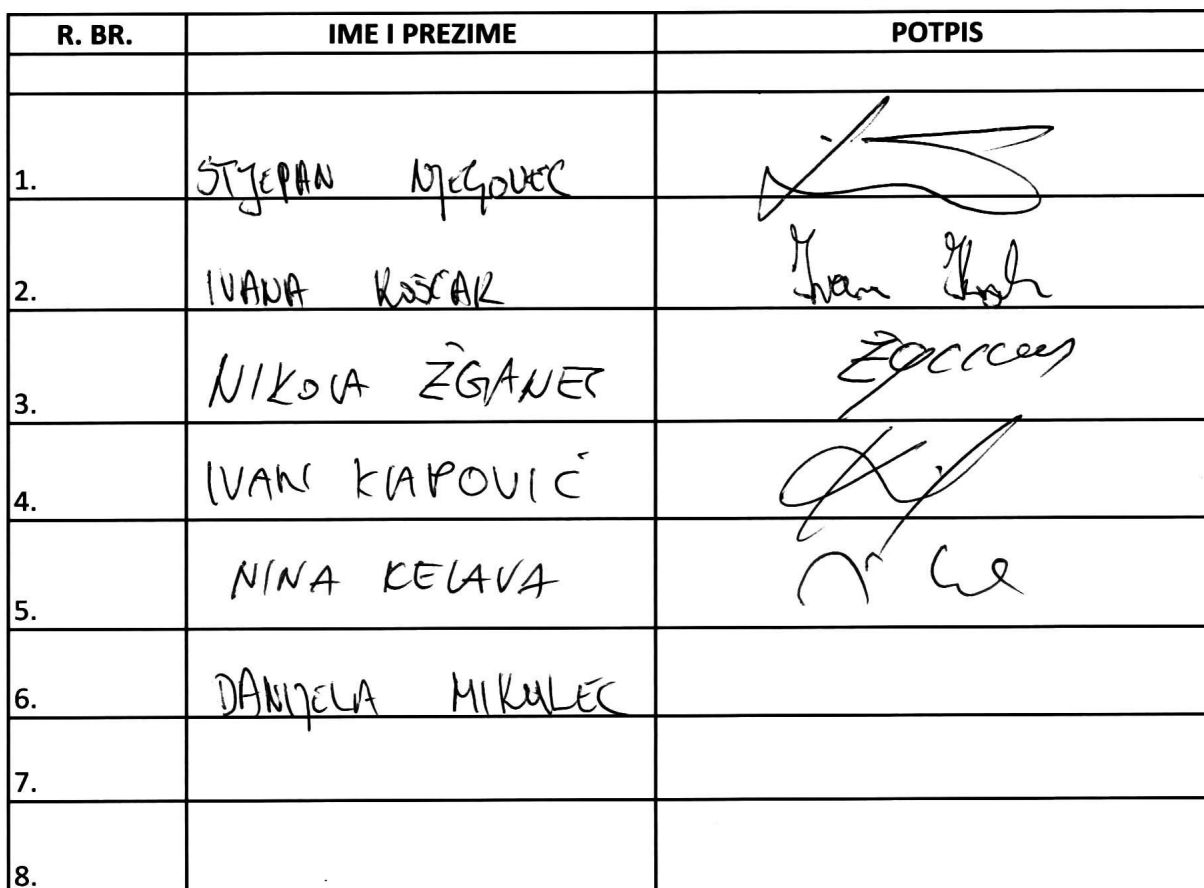 R. BR. IME I PREZIME POTPIS
1. STJEPAN NJEGOVEC
2. IVANA KOŠČAR Ivana
3. NIKOLA ŽGANEC
4. IVAN KLAPOVIĆ
5. NINA KELAVA
6. DANIJELA MIKULEC
7.
8.